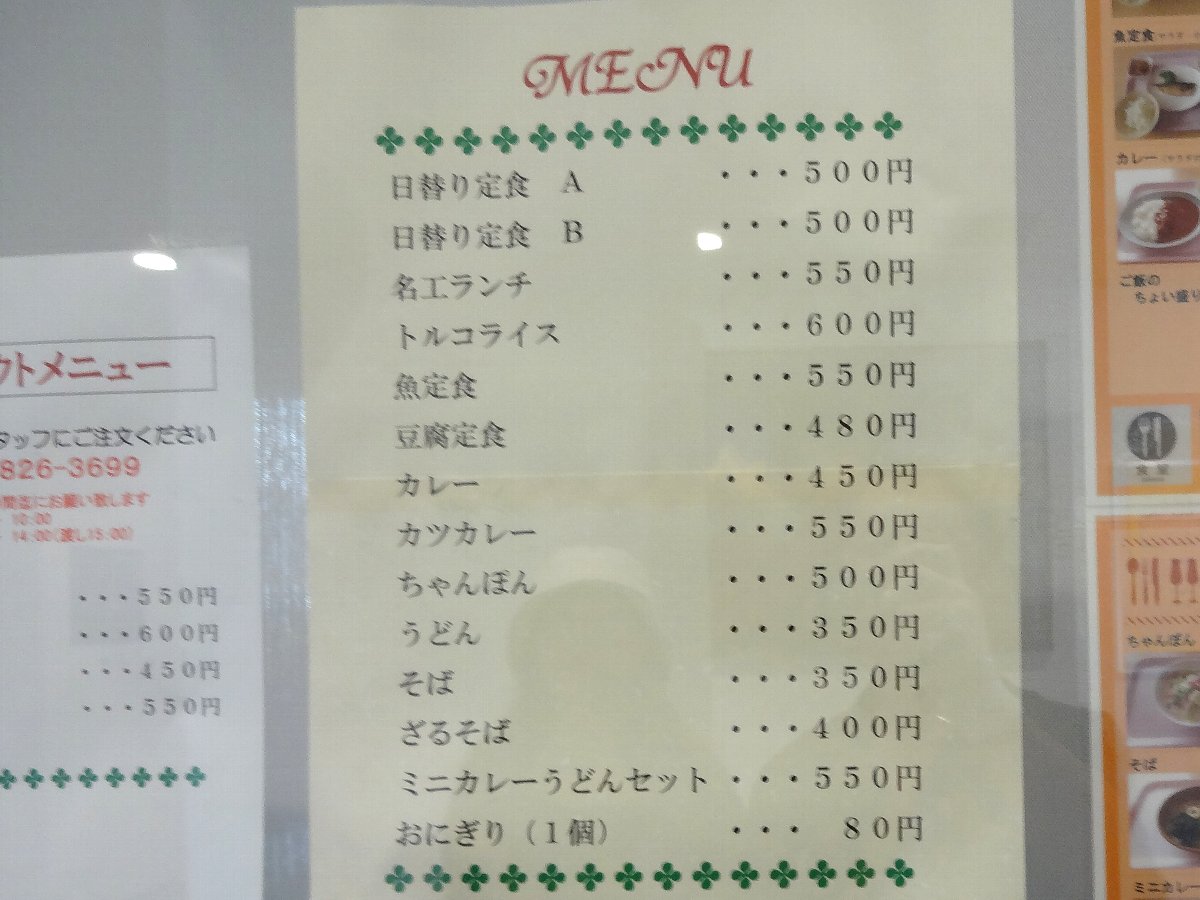 MENU
日替り定食　A　・・・５００円
日替り定食　B　・・・５００円
名工ランチ　・・・５５０円
トルコライス　・・・６００円
魚定食　・・・５５０円
豆腐定食　・・・４８０円
カレー　・・・４５０円
カツカレー　・・・５５０円
ちゃんぽん　・・・５００円
うどん　・・・３５０円
そば　・・・３５０円
ざるそば　・・・４００円
ミニカレーうどんセット　・・・５５０円
おにぎり（１個）　・・・　８０円
ウトメニュー
タッフにご注文ください
826-3699
間迄にお願い致します
10:00
14:00(渡し15:00)
・・・５５０円
・・・６００円
・・・４５０円
・・・５５０円
魚定食
カレー
ご飯の
ちょい盛り
食堂
ちゃんぽん
そば
ミニカレー